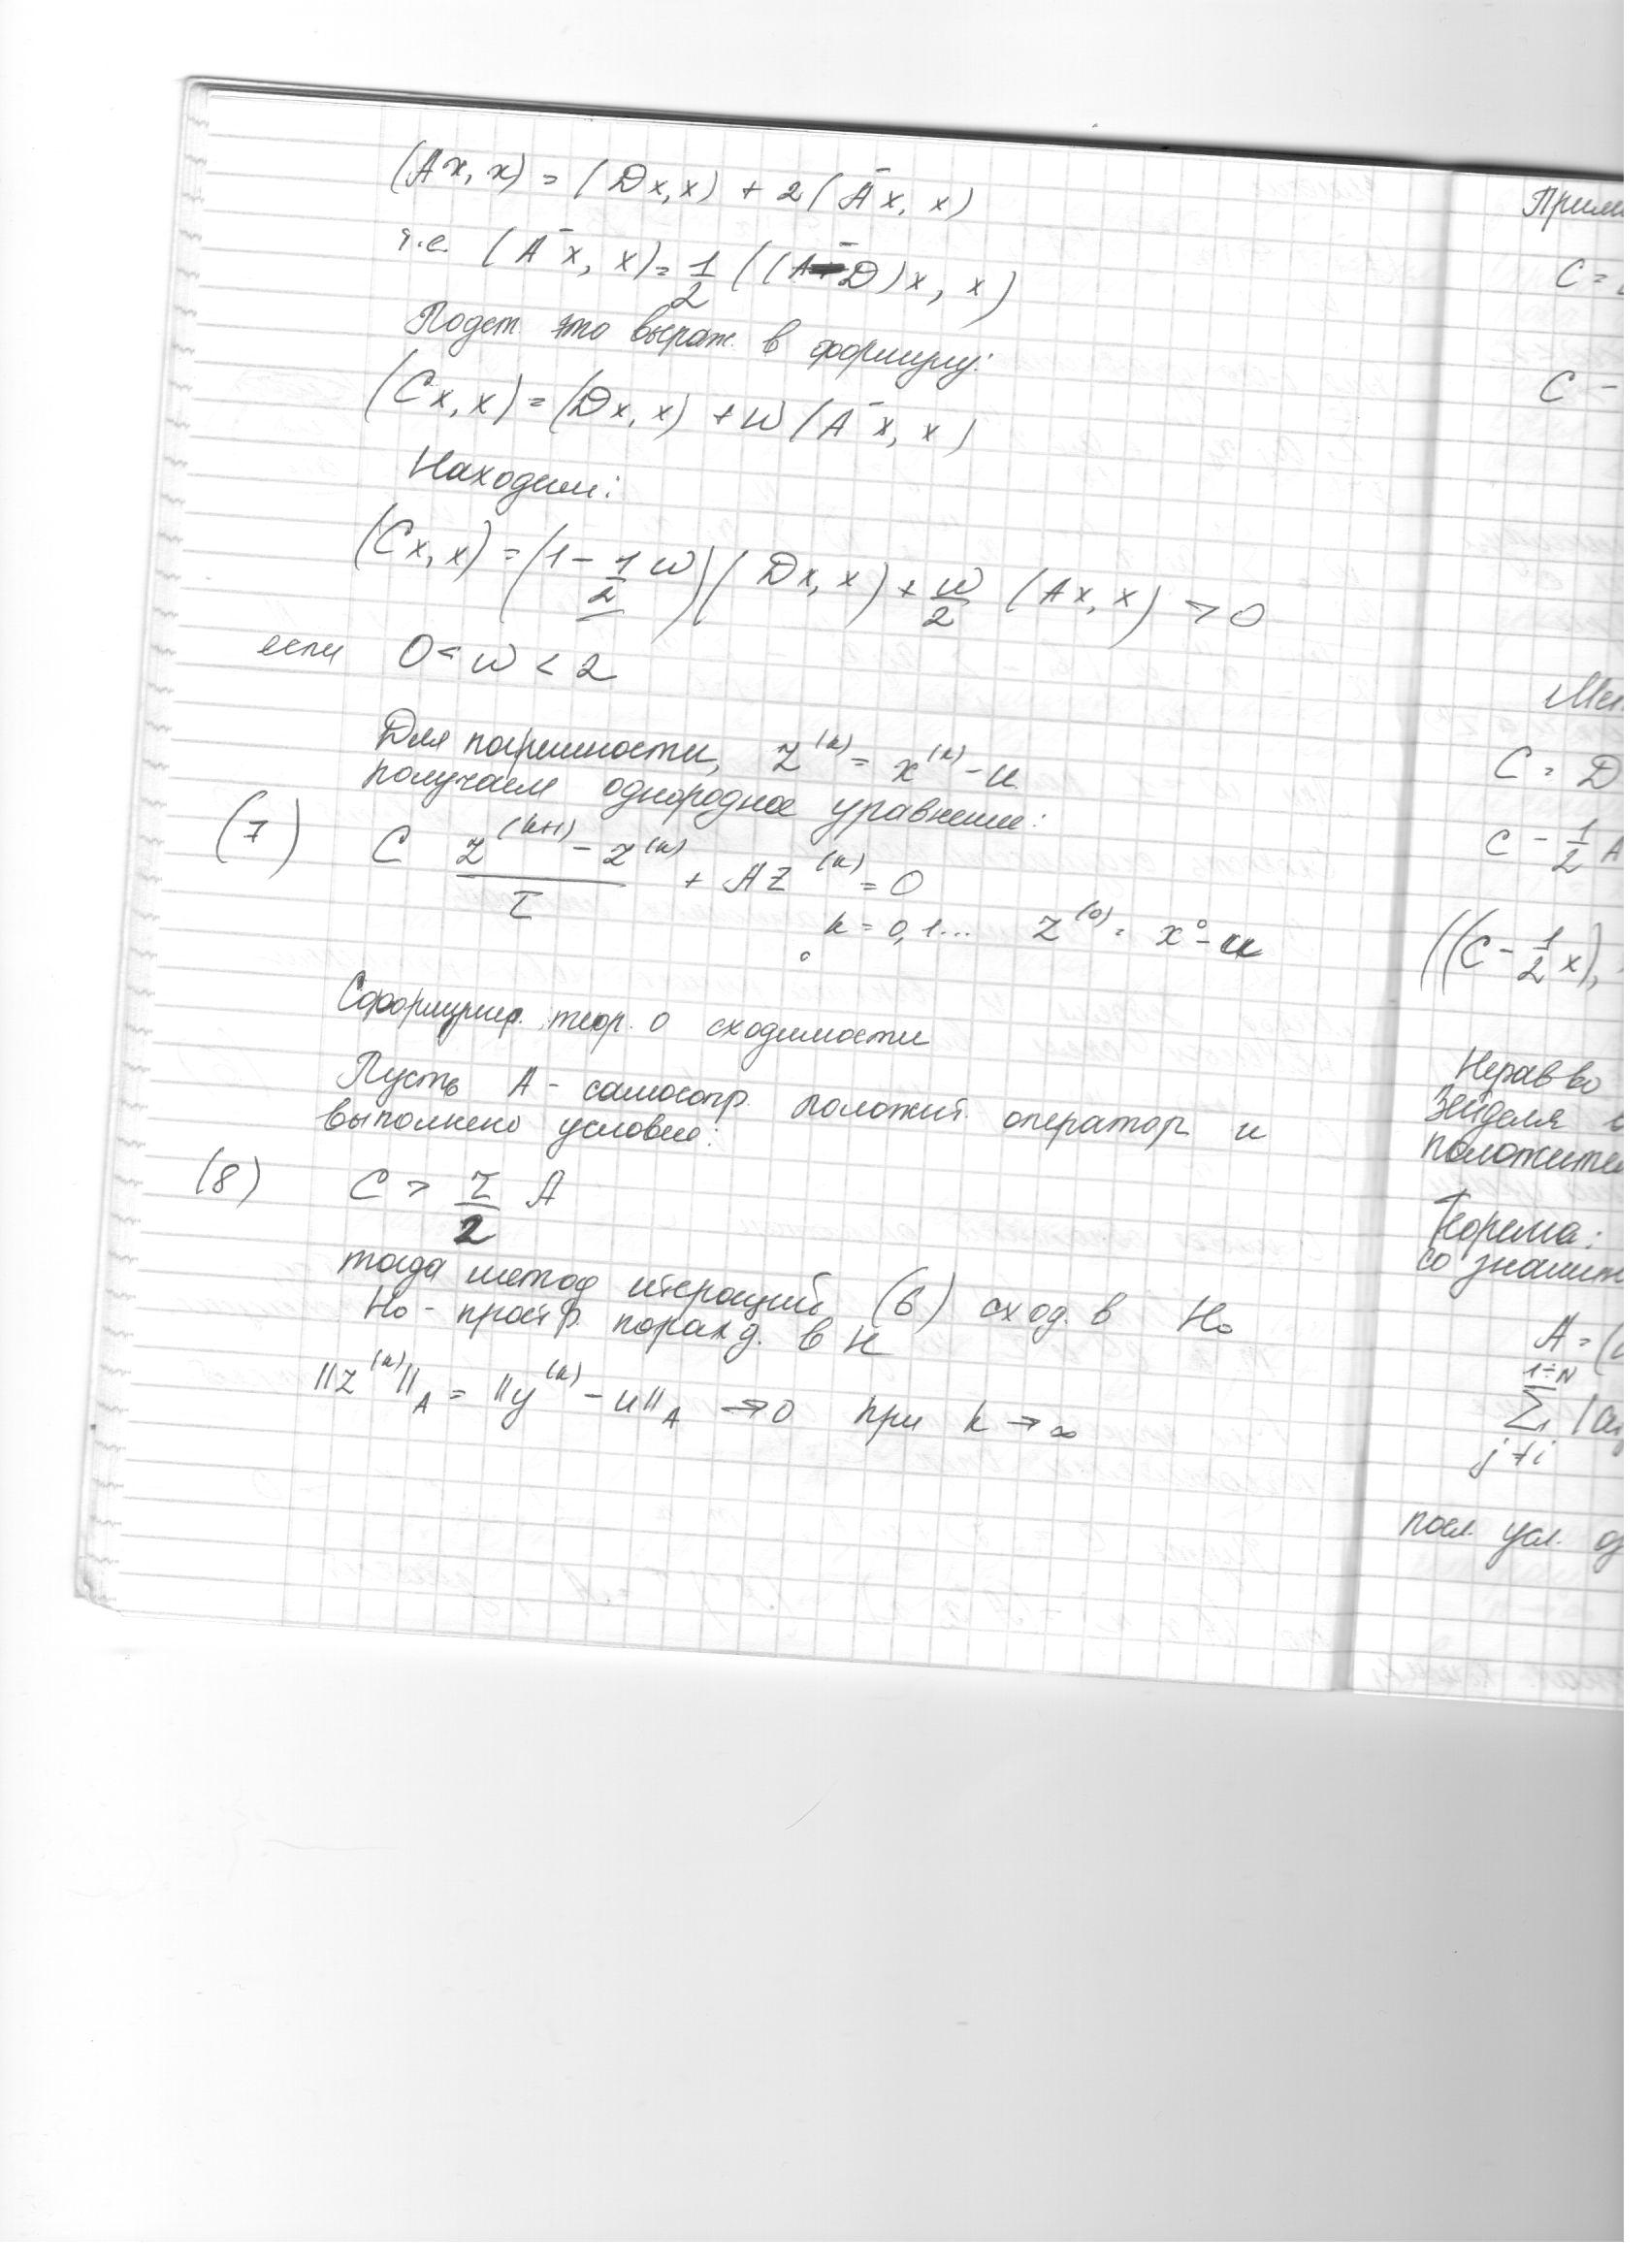 (Ax, x) = (Dx, x) + 2(A⁻x, x)
т.е. (A⁻x, x) = 1/2 ((A - D)x, x)
Подст. это выраж. в формулу:
(Cx, x) = (Dx, x) + w(A⁻x, x)
Находим:
(Cx, x) = (1 - 1/2 w)(Dx, x) + w/2 (Ax, x) > 0
если 0 < w < 2
Для погрешности, z⁽ᵏ⁾ = x⁽ᵏ⁾ - u
получаем однородное уравнение:
(7) C (z⁽ᵏ⁺¹⁾ - z⁽ᵏ⁾)/τ + Az⁽ᵏ⁾ = 0
k = 0,1... z⁽⁰⁾ = x⁰ - u
Сформулир. теор. о сходимости
Пусть A - самосопр. положит. оператор и
выполнено условие:
(8) C > τ/2 A
тогда метод итераций (6) сход. в H₀
H₀ - простр. поражд. в H
||z⁽ᵏ⁾||_A = ||y⁽ᵏ⁾ - u||_A → 0 при k → ∞
Прим
C =
C -
C = D
C - 1/2 A
((C - 1/2 x),
Нерав во
Зейделя
положител
Теорема:
со знамен
A = (
1÷N
∑ |a
j ≠ i
посл. усл.